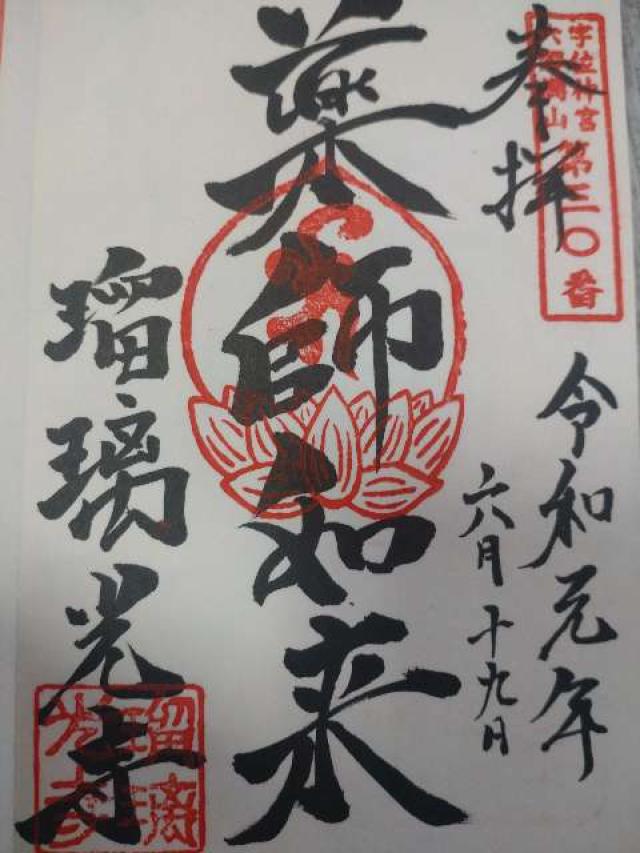 奉拝
宇佐神宮
六郷満山
第三〇番
令和元年
六月十九日
薬師如来
瑠璃光寺
瑠璃光寺